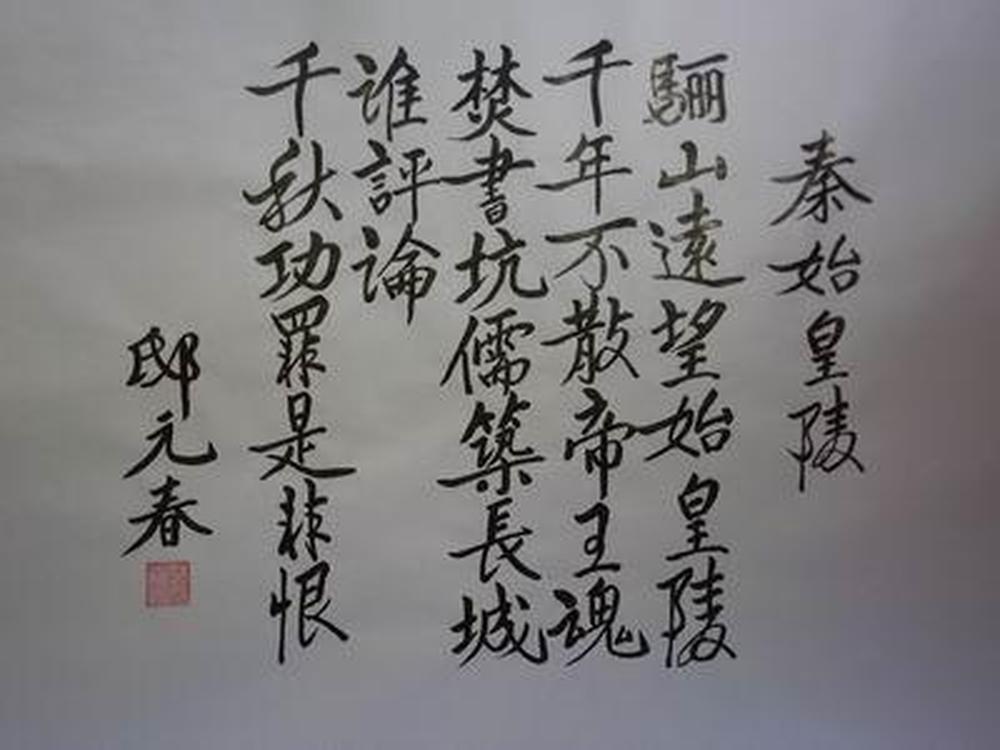 秦始皇陵
驪山遠望始皇陵
千年不散帝王魂
焚書坑儒築長城
誰評論
千秋功罪是非恨
邸元春